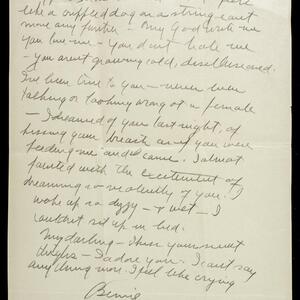 like a crippled dog on a string can't
move any further – My God write me
you love me – You don't hate me
– you aren't growing cold, disillusioned.
I've been true to you – never even
talking or looking wrong at a female
– I dreamed of you last night, of
kissing your breath as you were
feeding me and I came. I almost
fainted with the excitement of
dreaming so violently of you. I
woke up so dizzy & wet – I
couldn't sit up in bed.
My darling – I kiss your sweet
thighs – I adore you. I can't say
anything more I feel like crying